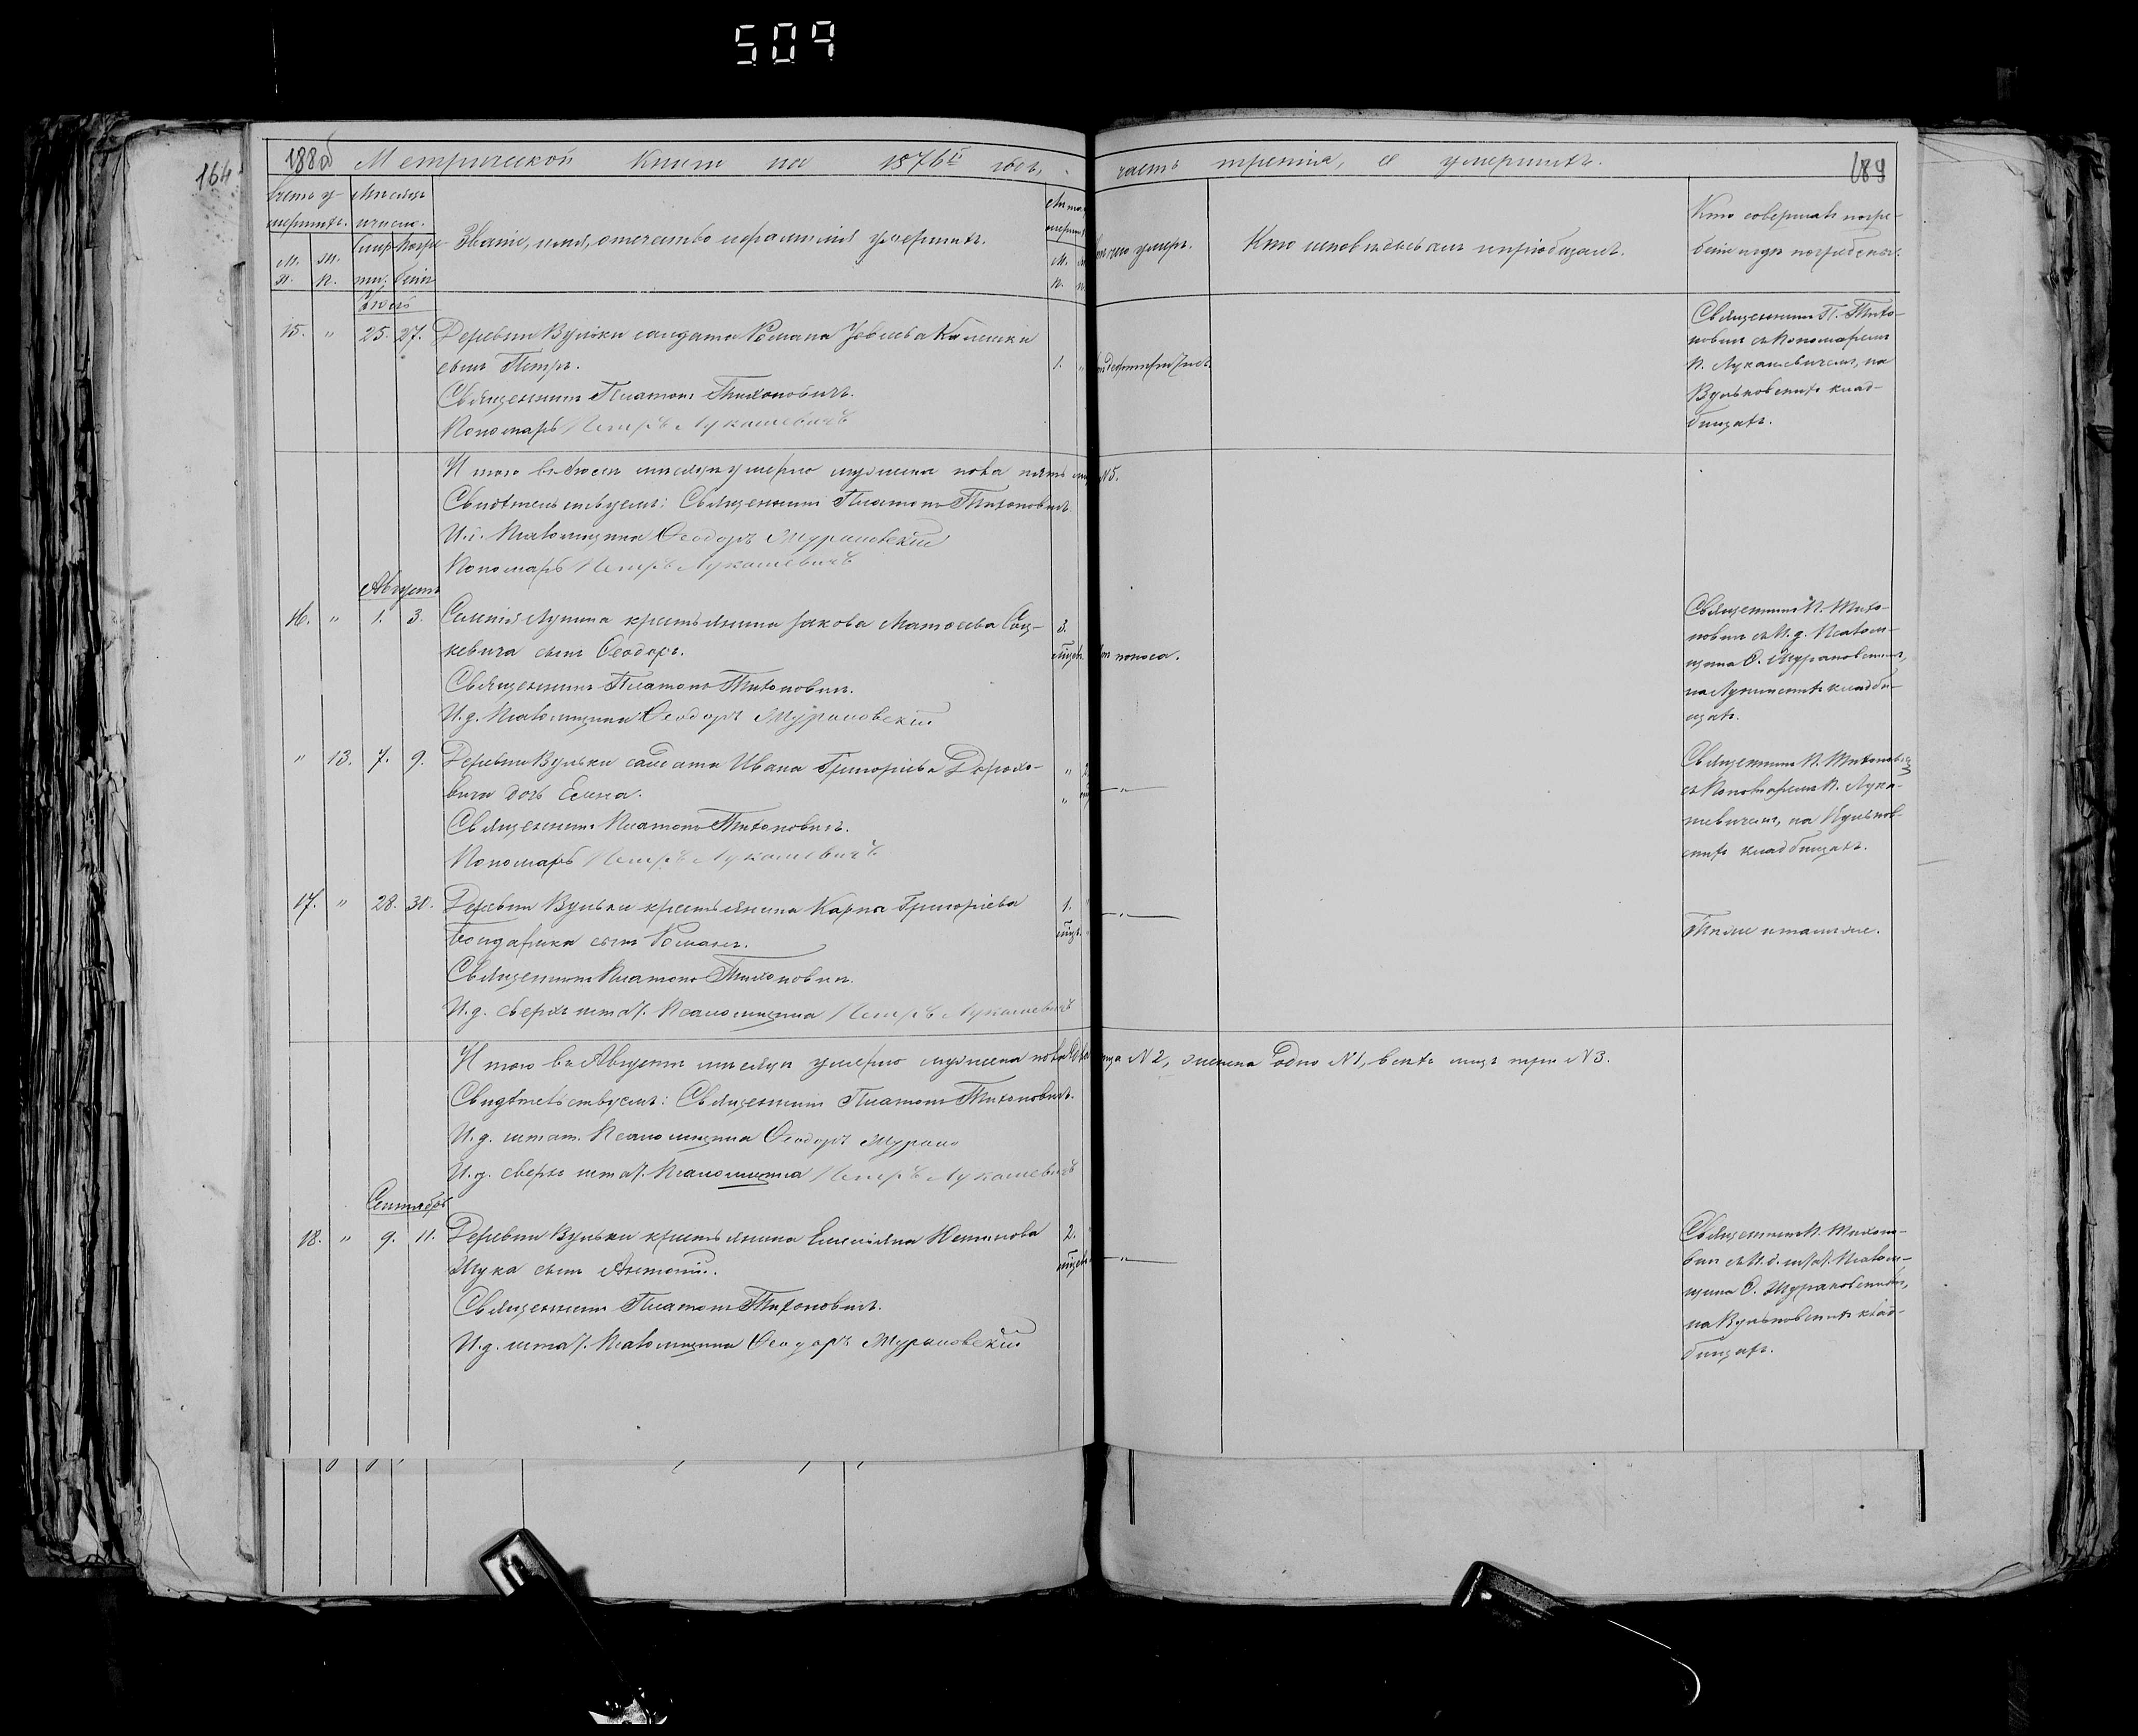 509
164
188об Метрической Книги на 1876й годъ,
часть третія, о умершихъ.
189
Счетъ у-
мершихъ.
Мѣсяцъ
и число.
М.
п.
Ж.
п.
Смер-
ти.
Погре-
бенія
Званіе, имя, отчество и фамилія умершихъ.
Лѣта
умершаго
М.
п.
Отъ чего умеръ.
Кто исповѣдывалъ и пріобщалъ.
Кто совершалъ погре-
беніе и гдѣ погребены.
15. " 25. 27. Деревни Вульки солдата Романа
сынъ Петръ. 1.
Священникъ Платонъ Тихоновичъ.
Пономарь Петръ Лукашевичъ
Священникъ П. Тихо-
новичъ съ Пономаремъ
П. Лукашевичемъ, на
Вульковскихъ клад-
бищахъ.
Итого въ мѣсяцѣ умерло мужеска пола пять №5.
Свидѣтельствуемъ: Священникъ Платонъ Тихоновичъ.
И.д. Псаломщика Ѳеодоръ Мурановскій
Пономарь Петръ Лукашевичъ
Августъ
16. " 1. 3. Селенія Лунина крестьянина Іакова Матѳеева
кевича сынъ Ѳеодоръ. 3. мѣсяц. От поноса.
Священникъ Платонъ Тихоновичъ.
И.д. Псаломщика Ѳеодоръ Мурановскій
Священникъ П. Тихо-
новичъ съ И.д. Псалом-
щика Ѳ. Мурановскимъ,
на Лунинскихъ кладби-
щахъ.
" 13. 7. 9. Деревни Вульки солдата Ивана Григоріева Дорохо-
вича дочь Елена. " — " —
Священникъ Платонъ Тихоновичъ.
Пономарь Петръ Лукашевичъ
Священникъ П. Тихоновичъ
съ Пономаремъ П. Лука-
шевичемъ, на Вульков-
скихъ кладбищахъ.
17. " 28. 30. Деревни Вульки крестьянина Карпа Григоріева
Бондарика сынъ Романъ. 1. мѣсяц. — " —
Священникъ Платонъ Тихоновичъ.
И.д. сверхштат. Псаломщика Петръ Лукашевичъ
Тѣже и тамже.
Итого въ Августѣ мѣсяцѣ умерло мужеска пола два лица №2, женска одно №1, всѣхъ лицъ три №3.
Свидѣтельствуемъ: Священникъ Платонъ Тихоновичъ.
И.д. штат. Псаломщика Ѳеодоръ Мурано
И.д. сверхштат. Псаломщика Петръ Лукашевичъ
Сентябрь
18. " 9. 11. Деревни Вульки крестьянина Емеліяна
сынъ Антоній. 2. мѣсяц. — " —
Священникъ Платонъ Тихоновичъ.
И.д. штат. Псаломщика Ѳеодоръ Мурановскій
Священникъ П. Тихоно-
вичъ съ И.д. штат. Псалом-
щика Ѳ. Мурановскимъ,
на Вульковскихъ клад-
бищахъ.